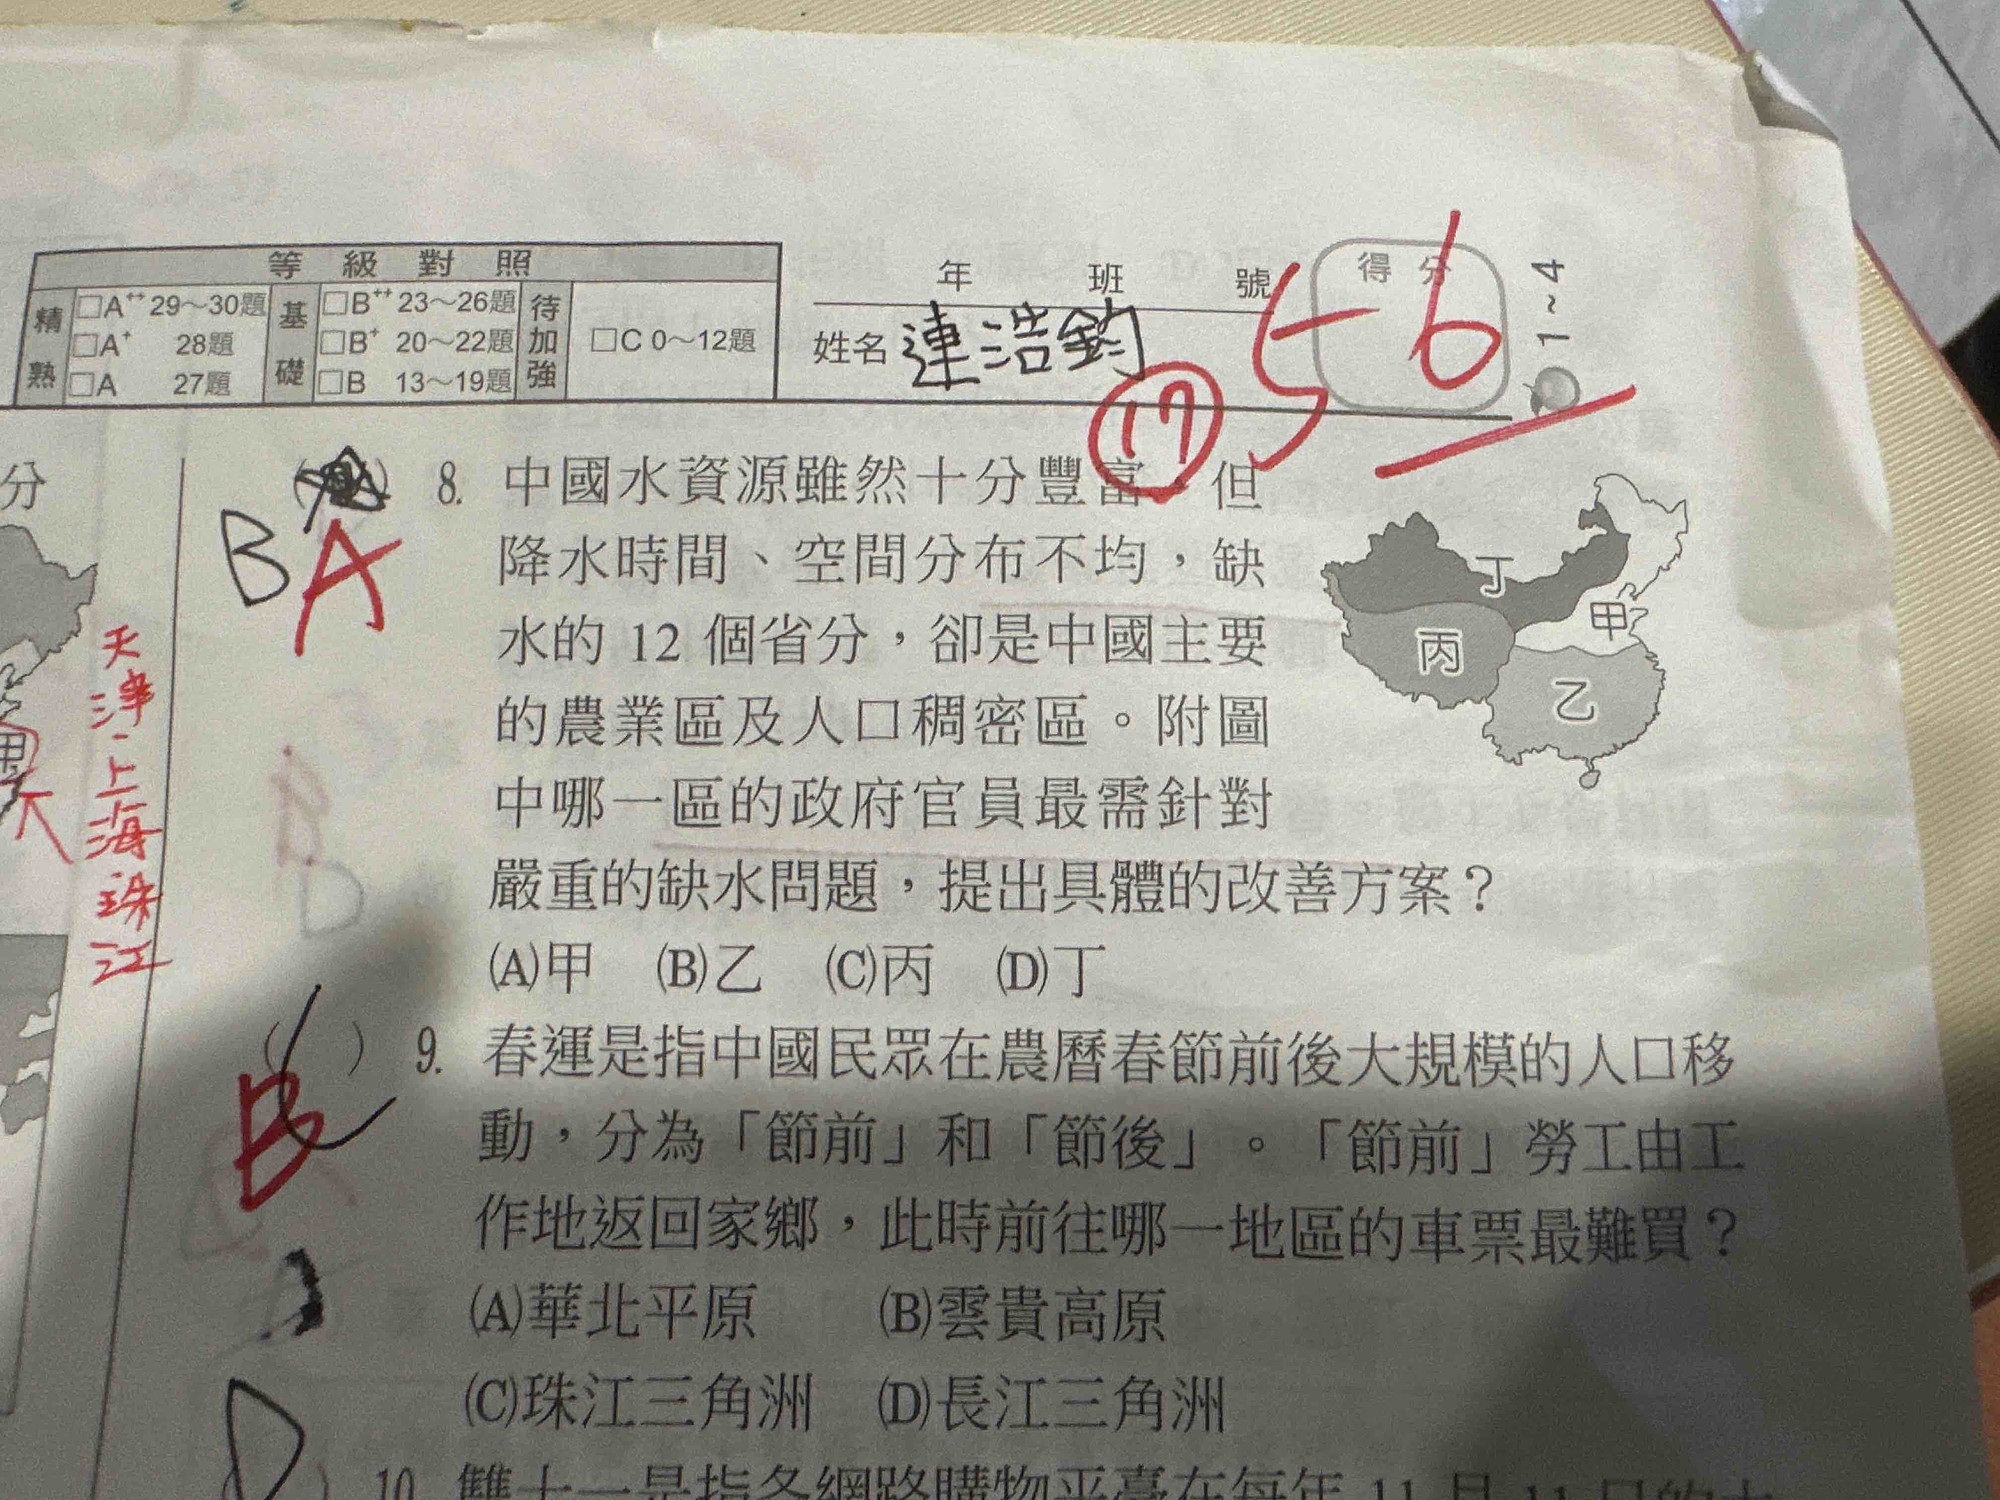 等級對照
精熟
□A⁺⁺ 29～30題
□A⁺ 28題
□A 27題
基礎
□B⁺⁺ 23～26題
□B⁺ 20～22題
□B 13～19題
待加強
□C 0～12題
年 班 號
姓名 連浩鈞
得分
56
17
1~4
分
天津、上海 珠江
B
A
8. 中國水資源雖然十分豐富，但
降水時間、空間分布不均，缺
水的 12 個省分，卻是中國主要
的農業區及人口稠密區。附圖
中哪一區的政府官員最需針對
嚴重的缺水問題，提出具體的改善方案？
(A)甲 (B)乙 (C)丙 (D)丁
丁
甲
丙
乙
B
( ) 9. 春運是指中國民眾在農曆春節前後大規模的人口移
動，分為「節前」和「節後」。「節前」勞工由工
作地返回家鄉，此時前往哪一地區的車票最難買？
(A)華北平原 (B)雲貴高原
(C)珠江三角洲 (D)長江三角洲
D
10. 雙十一是指各網路購物平臺在每年 11 月 11 日的大